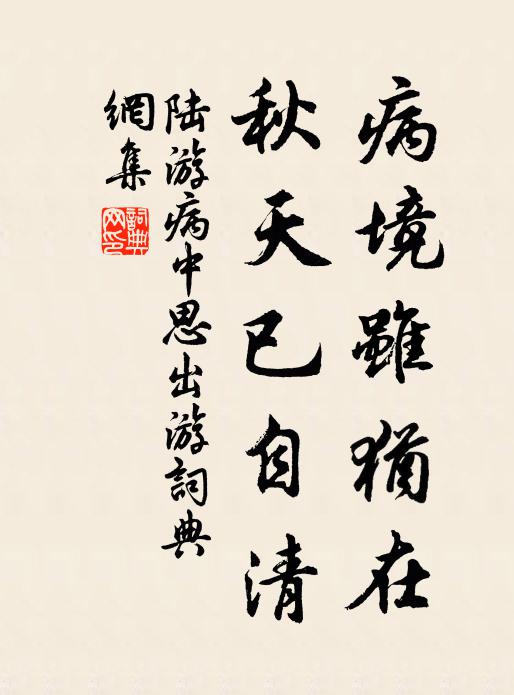 病境雖猶在
秋天已自清
陆游病中思出游詞典
網集
詞典
网印